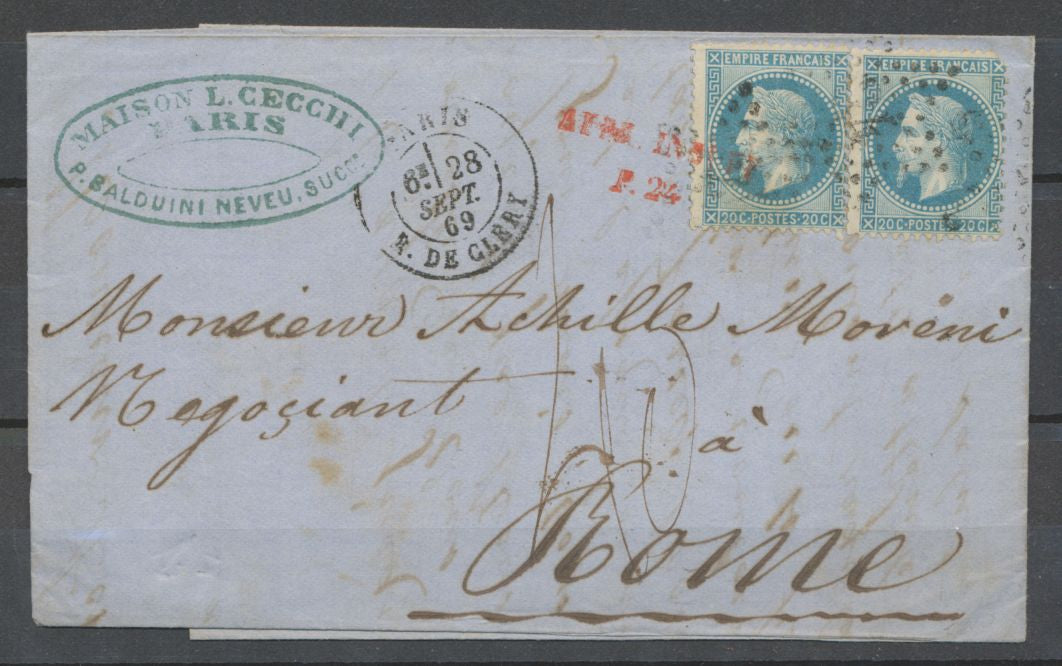 MAISON L. CECCHI
PARIS
P. BALDUINI NEVEU, SUCC.
PARIS
28
SEPT.
69
R. DE CLERY
P. 24
EMPIRE FRANÇAIS
20C-POSTES-20C
EMPIRE FRANÇAIS
20C-POSTES-20C
Monsieur Achille Moreni
Negoçiant
à
Rome